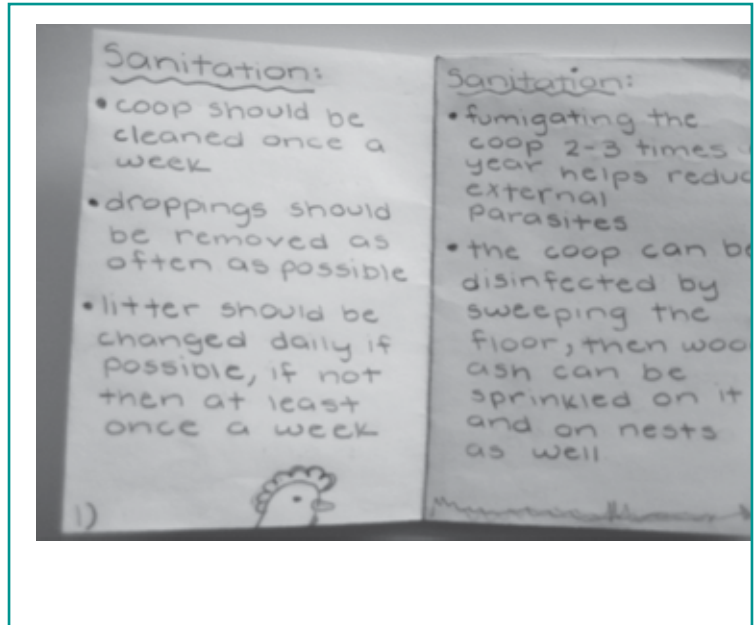 Sanitation:
• coop should be
cleaned once a
week
• droppings should
be removed as
often as possible
• litter should be
changed daily if
possible, if not
then at least
once a week
1)
Sanitation:
• fumigating the
coop 2-3 times
year helps reduc
external
parasites
• the coop can be
disinfected by
sweeping the
floor, then woo
ash can be
sprinkled on it
and on nests
as well